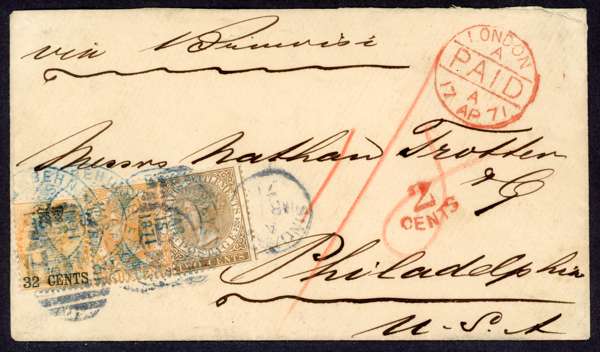 via Brindisi
LONDON
A
PAID
A
17 AP 71
Messrs Nathan Trotter
& Co
2
CENTS
32 CENTS
TWO CENTS
Philadelphia
U.S.A